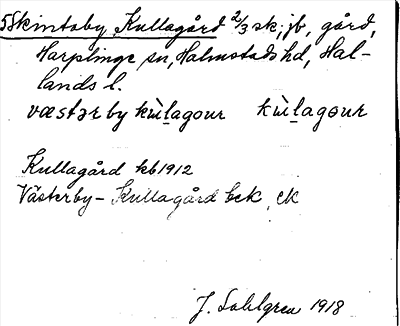 Skintaby, Kullagård 2/3 sk; jb, gård,
Harplinge sn, Halmstads hd, Hal-
lands l.
væstərby kùlagoυr kùlagoυr
Kullagård kb 1912
Västerby - Kullagård bek, ck
J. Sahlgren 1918